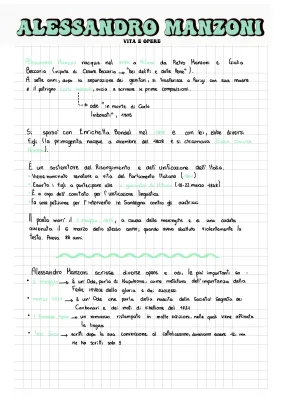 ALESSANDRO MANZONI
VITA E OPERE
Alessandro Manzoni nacque nel a Milano da Pietro Manzoni e Giulia
Beccaria (nipote di Cesare Beccaria → "Dei delitti e delle pene").
A sette anni, dopo la separazione dei genitori, si trasferisce a Parigi con sua madre
e il patrigno, inizia a scrivere le prime composizioni.
→ ode "in morte di Carlo
Imbonati", 1806
Si sposa con Enrichetta Blondel nel e con lei, ebbe diversi
figli (la primogenita nacque a dicembre del 1808 e si chiamava
È un sostenitore del Risorgimento e dell'unificazione dell'Italia.
· Viene nominato senatore a vita del Parlamento Italiano
· Esortò i figli a partecipare alle (18-22 marzo 1848)
· Creò un comitato per l'unificazione linguistica
· Fa una petizione per l'intervento in Sardegna contro gli austriaci.
Il poeta morì il a causa della meningite e di una caduta
avvenuta il 6 marzo dello stesso anno, quando aveva sbattuto violentemente la
testa. Aveva 88 anni.
Alessandro Manzoni scrisse diverse opere e odi, le più importanti so:
· → è un'Ode, parla di Napoleone, come metafora dell'importanza della
Fede invece della gloria e del successo
· marzo 1821 → è un'Ode che parla della nascita delle Società Segreta dei
Carbonari e dei moti di ribellione del 1821
· → un romanzo ristampato in molte edizioni, nelle quali viene affinata
la lingua
· → scritti dopo la sua conversione al Cattolicesimo, dovevano essere 12, ma
ne ha scritti solo 5